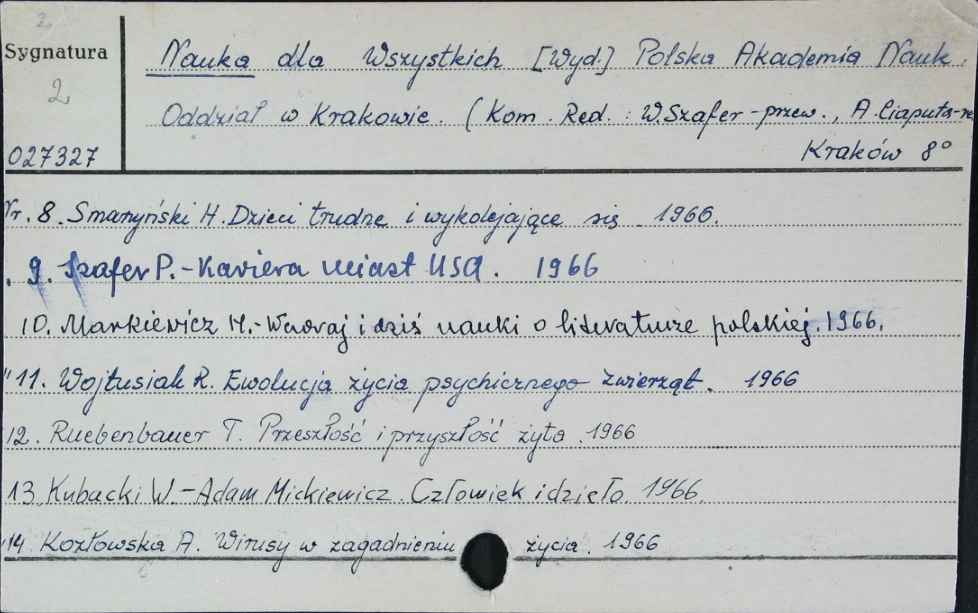 2
Sygnatura
2
027327
Nauka dla Wszystkich [Wyd.] Polska Akademia Nauk.
Oddział w Krakowie. (Kom. Red.: W. Szafer - przew., A. Ciaputa-re
Kraków 8°
Nr. 8. Smarzyński H. Dzieci trudne i wykolejające się 1966.
9. Szafer P. - Kariera miast USA. 1966
10. Markiewicz H. - Wczoraj i dziś nauki o literaturze polskiej. 1966.
" 11. Wojtusiak R. Ewolucja życia psychicznego zwierząt. 1966
12. Ruebenbauer T. Przeszłość i przyszłość żyta. 1966
13 Kubacki W. - Adam Mickiewicz. Człowiek i dzieło. 1966.
14 Kozłowska A. Wirusy w zagadnieniu życia. 1966